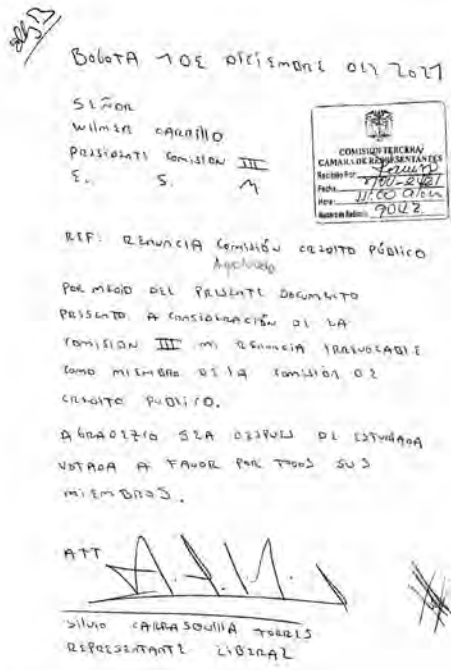 Bogotá 1 DE DICIEMBRE DEL 2021
SEÑOR
WILMER CARRILLO
PRESIDENTE COMISIÓN III
E. S. M
COMISION TERCERA
CAMARA DE REPRESENTANTES
Recibido Por:
Fecha:
Hora: 11:00 a.m.
REF: RENUNCIA COMISIÓN CREDITO PÚBLICO
Aprobado
POR MEDIO DEL PRESENTE DOCUMENTO
PRESENTO A CONSIDERACIÓN DE LA
COMISION III MI RENUNCIA IRREVOCABLE
COMO MIEMBRO DE LA COMISIÓN DE
CREDITO PUBLICO.
AGRADEZCO SEA DESPUES DE ESTUDIADA
VOTADA A FAVOR POR TODOS SUS
MIEMBROS.
ATT
SILVIO CARRASQUILLA TORRES
REPRESENTANTE LIBERAL